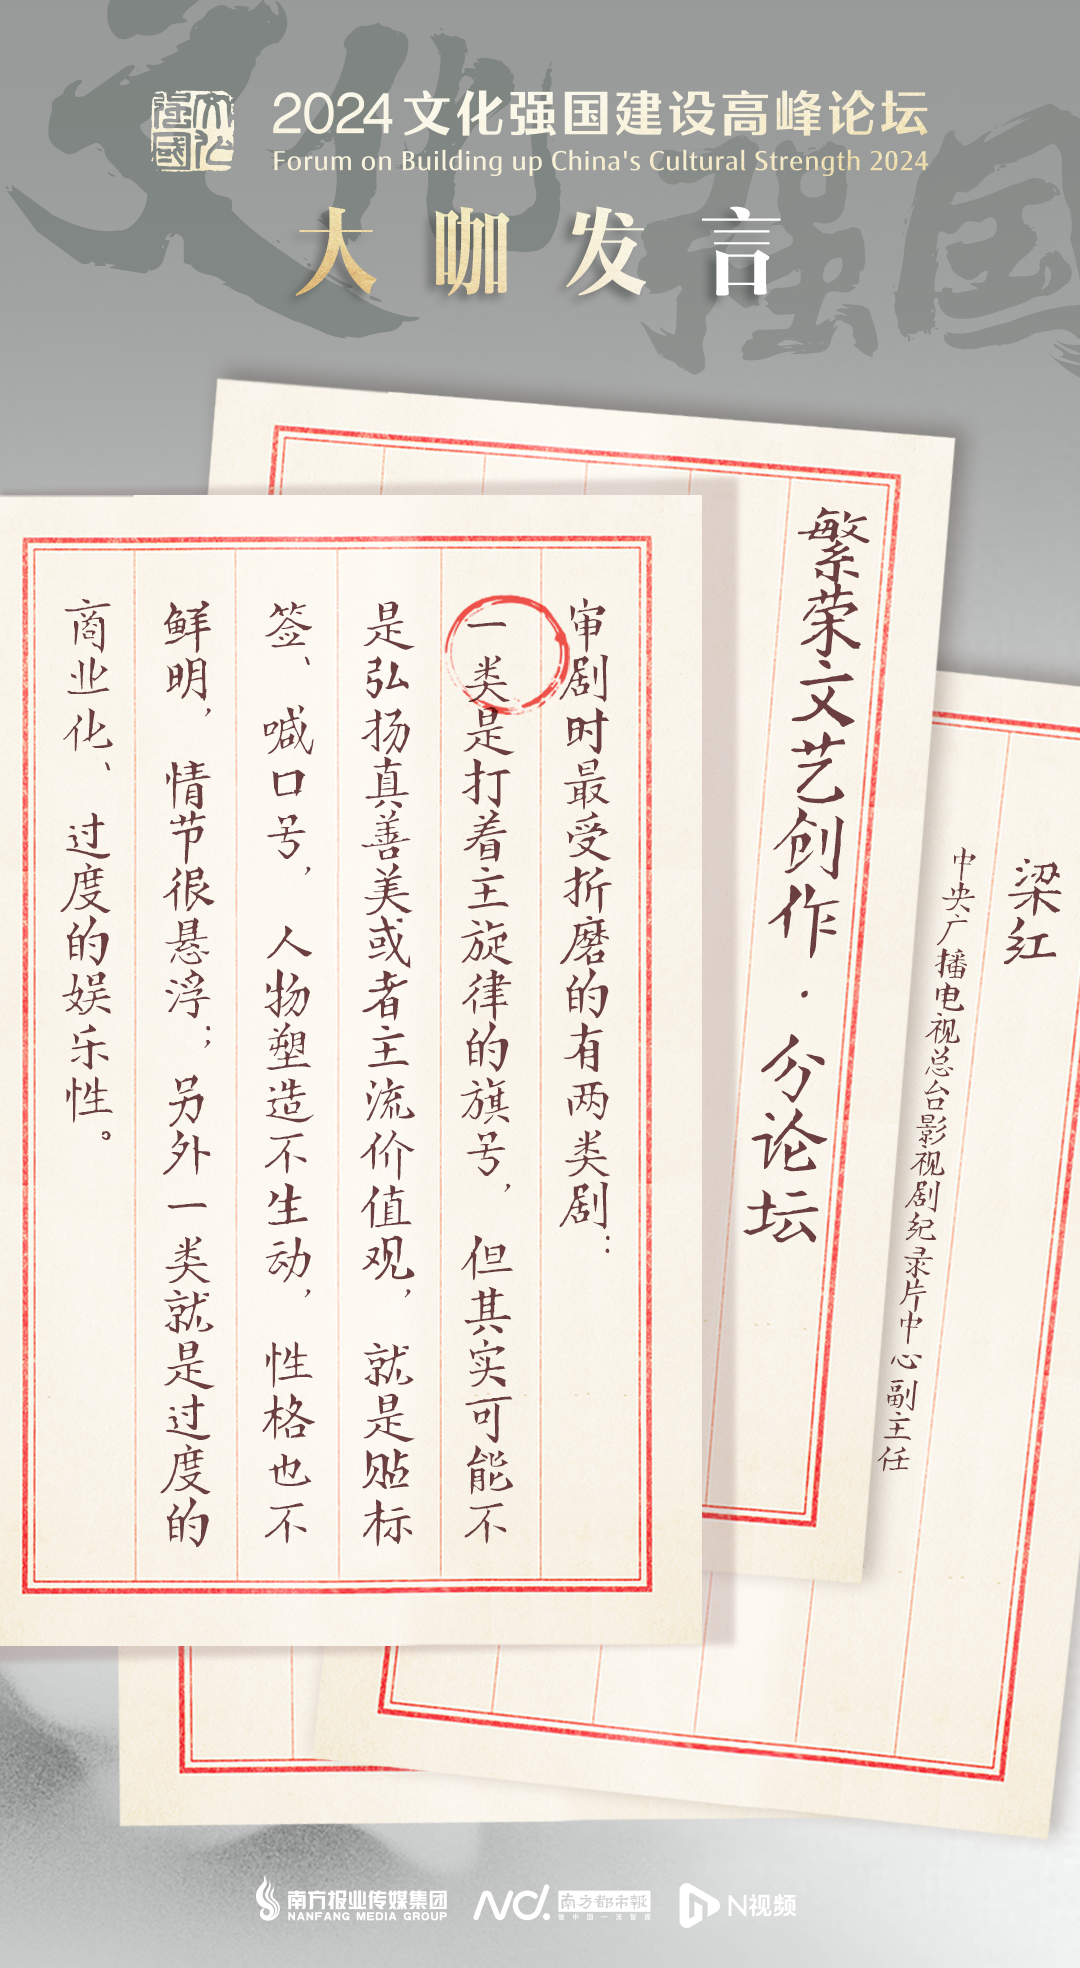 文化强国
2024文化强国建设高峰论坛
Forum on Building up China's Cultural Strength 2024
大咖发言
繁荣文艺创作·分论坛
梁红
中央广播电视总台影视剧纪录片中心副主任
审剧时最受折磨的有两类剧：
一类是打着主旋律的旗号，但其实可能不
是弘扬真善美或者主流价值观，就是贴标
签、喊口号，人物塑造不生动，性格也不
鲜明，情节很悬浮；另外一类就是过度的
商业化、过度的娱乐性。
南方报业传媒集团
NANFANG MEDIA GROUP
nd.
南方都市報
N视频